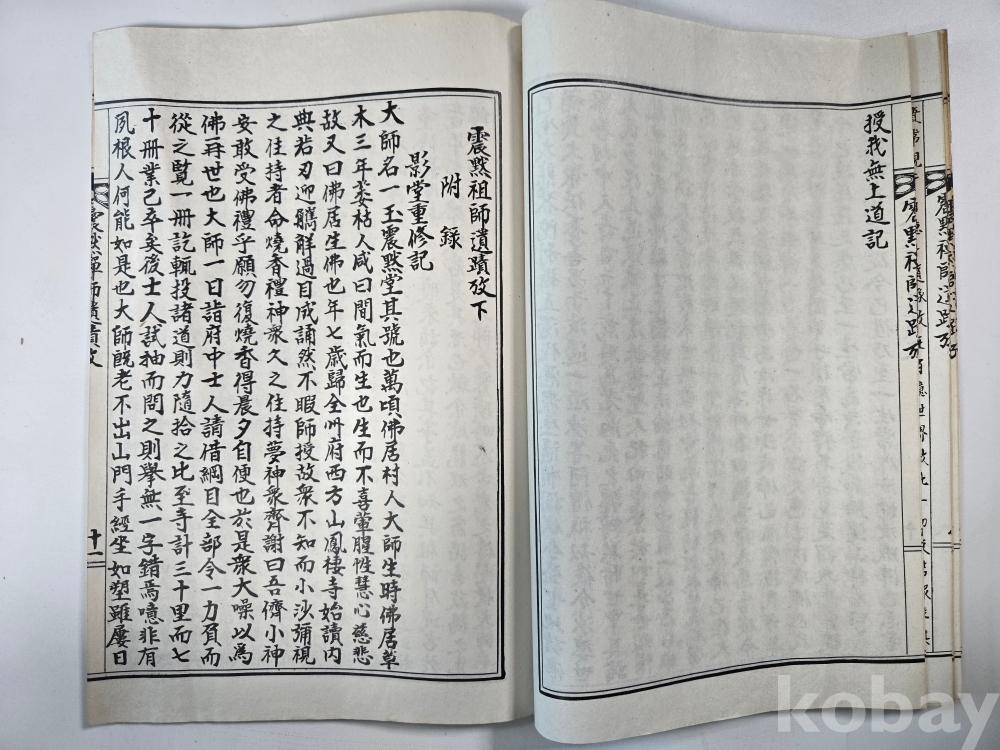 授我無上道記
震默祖師遺蹟攷下
附錄
影堂重修記
大師名一玉震默堂其號也萬頃佛居村人大師生時佛居草
木三年萎枯人咸曰間氣而生也生而不喜葷腥性慧心慈悲
故又曰佛居生佛也年七歲歸全州府西方山鳳棲寺始讀內
典若刃迎觿解過目成誦然不暇師授故衆不知而小沙彌視
之住持者命燒香禮神衆久之住持夢神衆齊謝曰吾儕小神
安敢受佛禮乎願勿復燒香得晨夕自便也於是衆大噪以爲
佛再世也大師一日詣府中士人請借綱目全部令一力負而
從之覽一冊訖輒投諸道則力隨拾之比至寺計三十里而七
十冊業已卒矣後士人試抽而問之則擧無一字錯焉噫非有
夙根人何能如是也大師旣老不出山門手經坐如塑雖屢日
十一
kobay